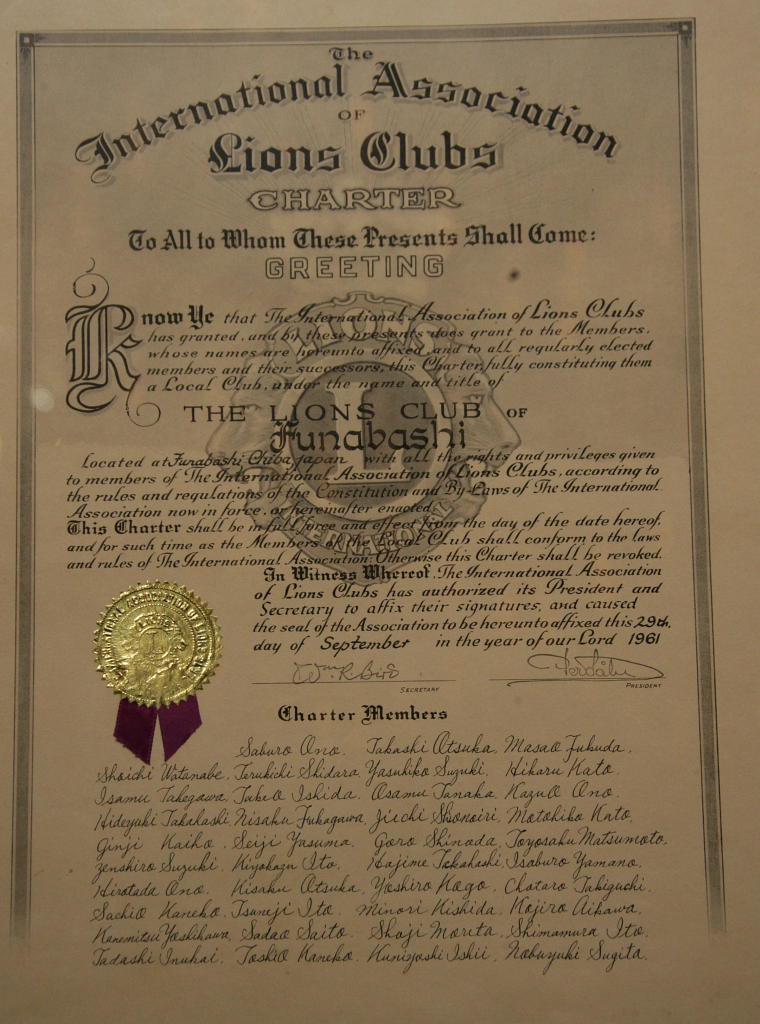 The
International Association
OF
Lions Clubs
CHARTER
To All to Whom These Presents Shall Come:
GREETING
Know Ye that The International Association of Lions Clubs
has granted, and by these presents does grant to the Members,
whose names are hereunto affixed, and to all regularly elected
members and their successors, this Charter, fully constituting them
a Local Club, under the name and title of
THE LIONS CLUB OF
Funabashi
Located at Funabashi Chiba Japan with all the rights and privileges given
to members of The International Association of Lions Clubs, according to
the rules and regulations of the Constitution and By-Laws of The International
Association now in force, or hereinafter enacted.
This Charter shall be in full force and effect from the day of the date hereof,
and for such time as the Members of the Local Club shall conform to the laws
and rules of The International Association; Otherwise this Charter shall be revoked.
In Witness Whereof, The International Association
of Lions Clubs has authorized its President and
Secretary to affix their signatures, and caused
the seal of the Association to be hereunto affixed this 29th.
day of September in the year of our Lord 1961
Wm. R. Bird
SECRETARY PRESIDENT
Charter Members
Saburo Ono. Takashi Otsuka, Masao Fukuda,
Shoichi Watanabe, Terukichi Shidara, Yasuhiko Suzuki, Hikaru Kato.
Isamu Takegawa, Takeo Ishida. Osamu Tanaka. Kazuo Ono.
Hideyuki Takahashi, Nisaku Fukagawa, Jiichi Shonoiri, Motohiko Kato,
Ginji Kaiho, Seiji Yasuma. Goro Shinada, Toyosaku Matsumoto,
Zenshiro Suzuki. Kiyokazu Ito. Hajime Takahashi, Isaburo Yamano,
Hirotada Ono. Kisaku Otsuka, Yoshiro Kogo. Chotaro Takiguchi.
Sachio Kaneko, Tsuneji Ito. Minori Kishida, Kojiro Aikawa,
Kanemitsu Yoshikawa, Sadao Saito. Shoji Morita, Shimamura Ito.
Tadashi Inukai. Toshio Kaneko. Kuniyoshi Ishii, Nobuyuki Sugita.